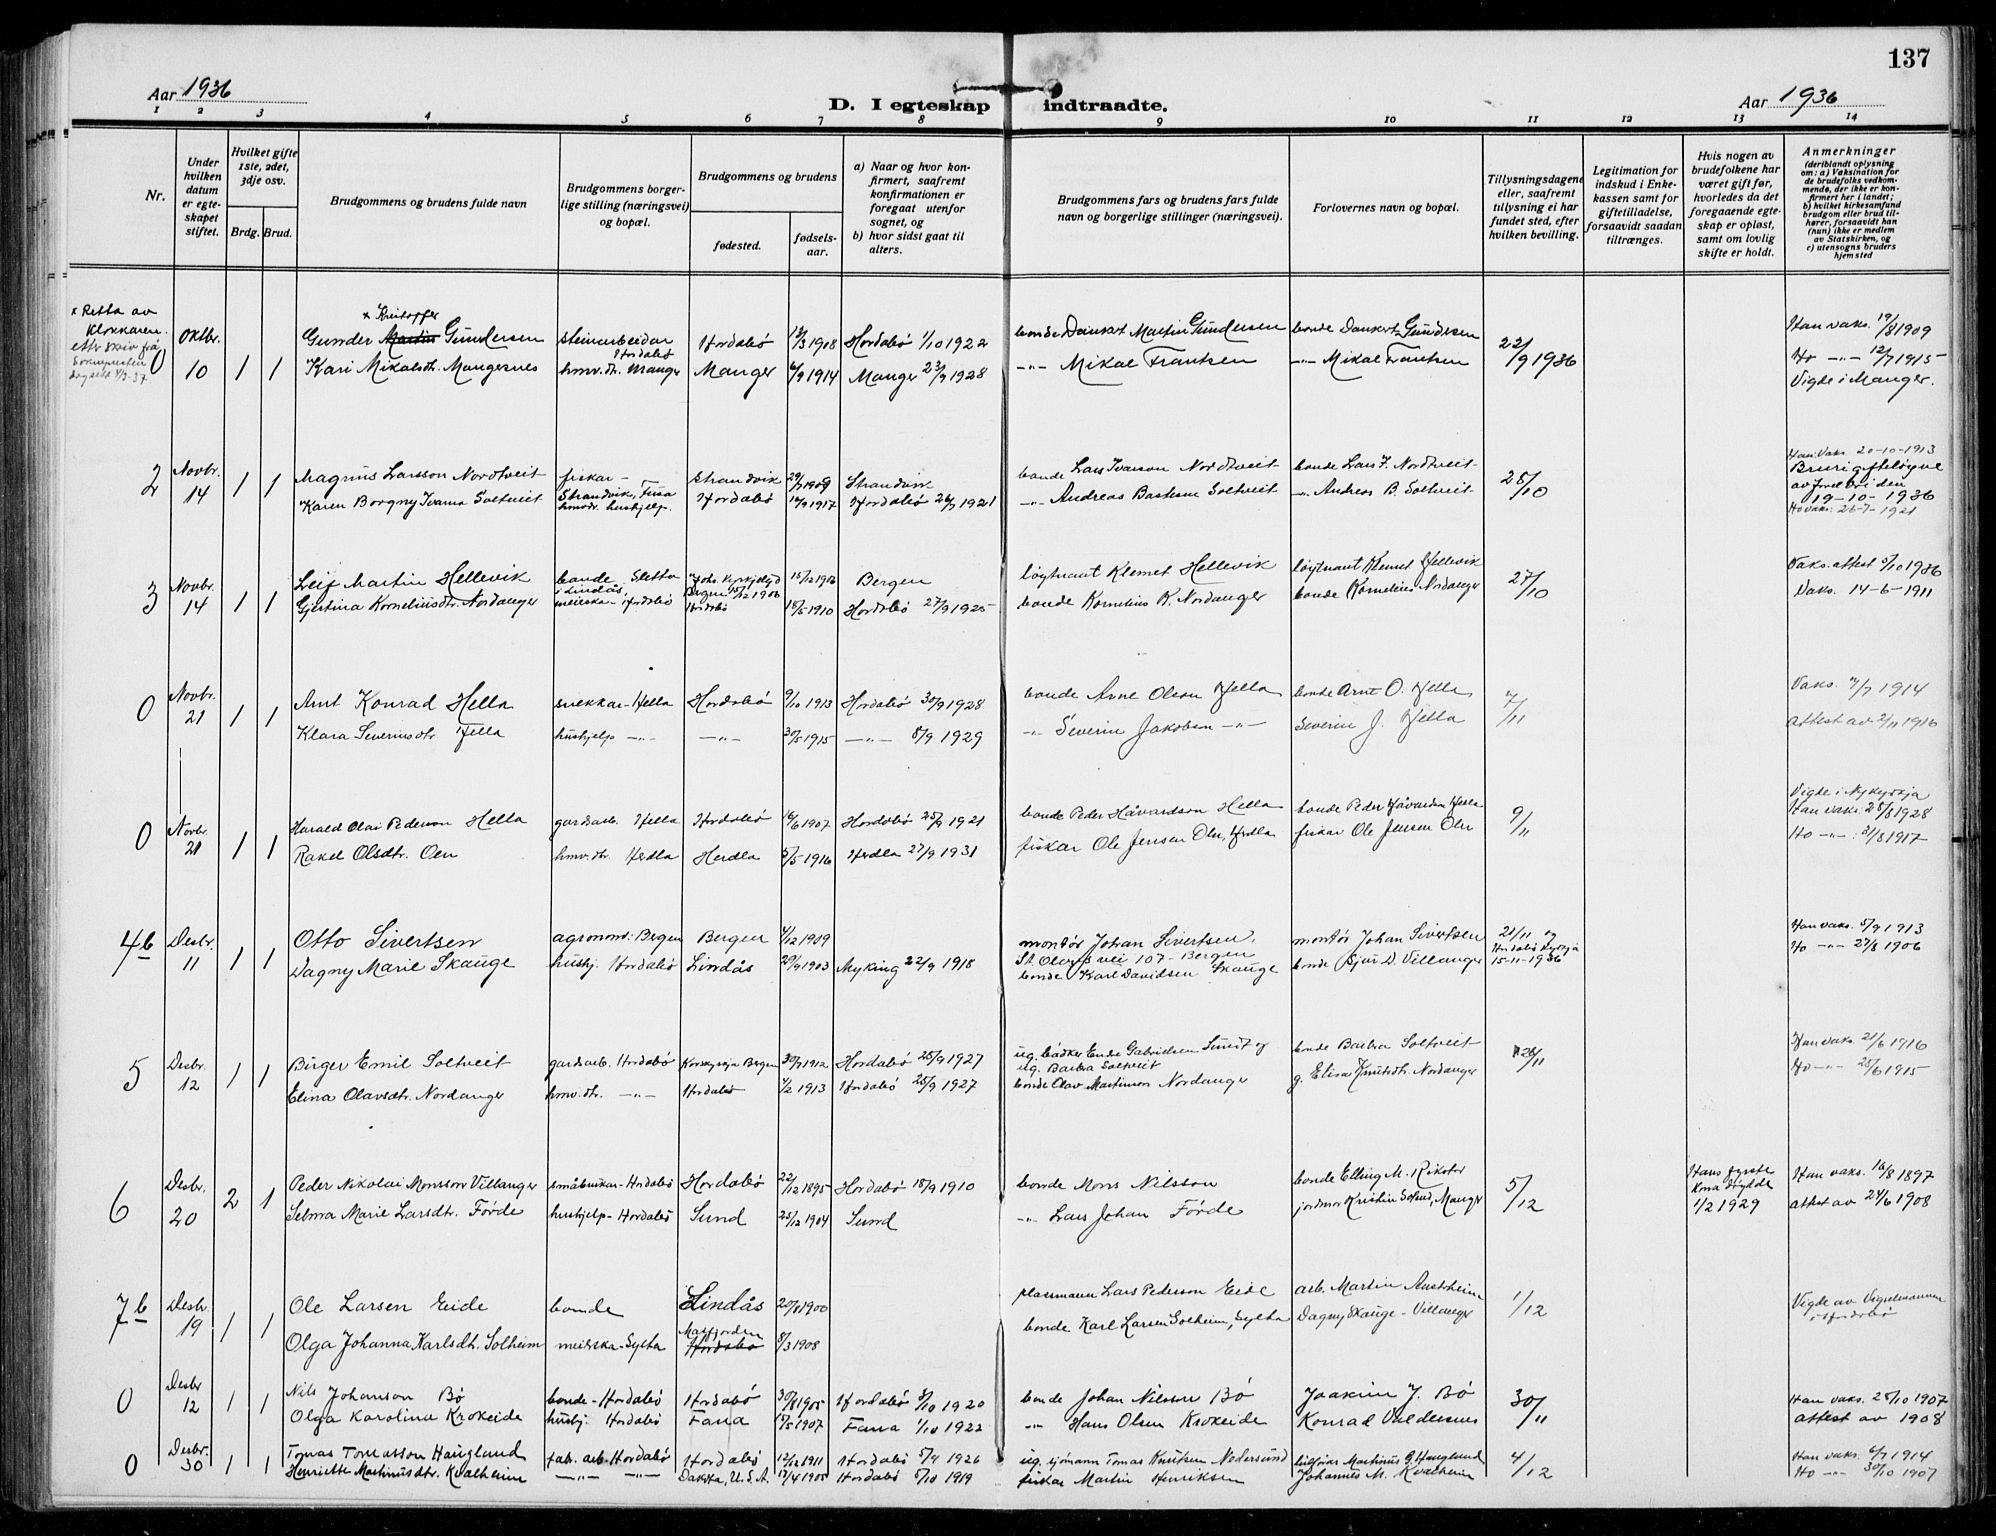 137
Aar 1936
D. I egteskap indtraadte.
Aar 1936
1 2 3 4 5 6 7 8 9 10 11 12 13 14
Nr.
Under hvilken datum er egteskapet stiftet.
Hvilket gifte 1ste, 2det, 3dje osv.
Brdg. Brud.
Brudgommens og brudens fulde navn
Brudgommens borgerlige stilling (næringsvei) og bopæl.
Brudgommens og brudens
fødested.
fødselsaar.
a) Naar og hvor konfirmert, saafremt konfirmationen er foregaat utenfor sognet, og
b) hvor sidst gaat til alters.
Brudgommens fars og brudens fars fulde navn og borgerlige stillinger (næringsvei).
Forlovernes navn og bopæl.
Tillysningsdagene eller, saafremt tillysning ei har fundet sted, efter hvilken bevilling.
Legitimation for indskud i Enkekassen samt for giftetilladelse, forsaavidt saadan tiltrænges.
Hvis nogen av brudefolkene har været gift før, hvorledes da det foregaaende egteskap er opløst, samt om lovlig skifte er holdt.
Anmerkninger
(deriblandt oplysning om: a) Vaksination for de brudefolks vedkommende, der ikke er konfirmert her i landet;
b) hvilket kirkesamfund brudgom eller brud tilhører, forsaavidt han (hun) ikke er medlem av Statskirken, og
c) utensogns bruders hjemsted
x Retta av
klokkaren
etter skriv frå
x Kristoffer
0 Oktbr. 10 1 1 Gunder Martin Gundersen steinarbeidar Hordabø Hordabø 13/3 1908 Hordabø 1/10 1922 bonde Dankert Martin Gundersen bonde Dankert Gundersen 22/9 1936 Han vaks. 19/8 1909
Kari Mikalsdr. Mangernes hmv. dr. Manger Manger 6/9 1914 Manger 23/9 1928 -"- Mikal Frantsen -"- Mikal Frantsen Ho -"- 12/7 1915
Vigde i Manger.
2 Novbr. 14 1 1 Magnus Larsson Nordtveit fiskar - Strandvik, Fusa Strandvik 29/7 1909 Strandvik bonde Lars Ivarson Nordtveit bonde Lars I. Nordtveit 28/10 Han vaks. 20-10-1913
Karen Borgny Ivarna Soltveit hmvdr. hushjelp. Hordabø 16/9 1917 Hordabø 26/7 1921 -"- Andreas Bastesen Soltveit -"- Andreas B. Soltveit Bruri gifteløyve
19-10-1936
Ho vaks. 26-7-1921
3 Novbr. 14 1 1 Leif Martin Hellevik bonde Sletta i Lindås Joh. kyrkjelyd Bergen 15/12 1906 15/12 1906 Bergen løytnant Klemet Hellevik løytnant Klemet Hellevik 27/10 Vaks. attest 5/10 1936
Gjertina Kornelinsdtr. Nordanger meierske - Hordabø Hordabø 18/5 1910 Hordabø 27/9 1925 bonde Kornelius K. Nordanger bonde Kornelius Nordanger Vaks. 14-6-1911
0 Novbr. 21 1 1 Arnt Konrad Hella snekkar - Hella Hordabø 9/10 1913 Hordabø 30/9 1928 bonde Arne Olson Hella bonde Arnt O. Hella 7/11 Vaks. 7/7 1914
Klara Severinsdtr. Hella hushjelp -"- -"- 30/5 1915 -"- 8/9 1929 -"- Severin Jakobsen -"- Severin J. Hella attest av 2/11 1916
0 Novbr. 21 1 1 Harald Olai Pederson Hella gardsarb. Hella Hordabø 16/6 1907 Hordabø 25/9 1921 bonde Peder Håvardson Hella bonde Peder Håvardson Hella 9/11 Vigde i Nykyrkja
Han vaks. 28/8 1928
Rakel Olsdtr. Oen hmv. dtr. Herdla Herdla 5/5 1916 Herdla 27/9 1931 fiskar Ole Jensen Oen, Herdla fiskar Ole Jensen Oen Ho -"- : 31/8 1917
4b Desbr. 11 1 1 Otto Sivertsen agronom. Bergen Bergen 4/12 1909 montør Johan Sivertsen, St. Olavs vei 107 - Bergen montør Johan Sivertsen 21/11 og Hordabø kyrkja 15-11-1936 Han vaks. 5/9 1913
Dagny Marie Skauge hushj. Hordabø Lindås 29/9 1903 Myking 22/9 1918 bonde Karl Davidsen Skauge bonde Sjur D. Villanger Ho -"- 27/8 1906
5 Desbr. 12 1 1 Birger Emil Soltveit gardsarb. Hordabø Korskyrkja Bergen 30/9 1912 Hordabø 25/9 1927 ug. bådker Endre Gabrielsen Sundt og ug. Barbra Soltveit bonde Barbra Soltveit 26/11 Han vaks. 21/6 1916
Elina Olavsdtr. Nordanger hmv. dtr. -"- Hordabø 7/2 1913 Hordabø 25/9 1927 bonde Olav Martinson Nordanger g. Elisa Knutsdtr. Nordanger Ho -"- 25/6 1915
6 Desbr. 20 2 1 Peder Nikolai Monsson Villanger småbrukar - Hordabø Hordabø 22/12 1895 Hordabø 18/9 1910 bonde Mons Nilsson bonde Elling M. Rikstor 5/12 Hans fyrste kona døydde 1/2 1929 Han vaks. 16/8 1897
Selma Marie Larsdtr. Førde hushjelp - Hordabø Sund 25/12 1904 Sund -"- Lars Johan Førde jordmor Kristin Sekse, Manger attest av 24/6 1908
7b Desbr. 19 1 1 Ole Larsen Eide bonde Lindås 20/8 1900 plassmann Lars Pederson Eide arb. Martin Austrheim 1/12 Vigde av Vigselmannen i Hordabø
Olga Johanna Karlsdtr. Solheim meierska - Sylta Masfjorden Hordabø 8/3 1908 bonde Karl Larsen Solheim, Sylta Dagny Skauge - Villanger
0 Desbr 12 1 1 Nils Johanson Bø bonde - Hordabø Hordabø 30/8 1905 Hordabø 3/10 1920 bonde Johan Nilsson Bø Joakim J. Bø 30/11 Han vaks. 25/10 1907
Olga Karolina Krokeide hushj. Hordabø Fana 15/5 1907 Fana 1/10 1922 -"- Hans Olsen Krokeide Konrad Valdersnes attest av 1908
0 Desbr. 30 1 1 Tomas Tomasson Hauglund fab. arb. Hordabø Hordabø 12/12 1911 Hordabø 5/9 1926 ug. sjømann Tomas Knutsen Nedersund Martinus G. Hauglund 4/12 Han vaks. 6/7 1914
Henriette Martinusdtr. Kvalheim -"- -"- Dakota, U.S.A. 17/4 1905 Hordabø 5/10 1919 fiskar Martin Henriksen Johannes M. Kvalheim Ho -"- 30/10 1907